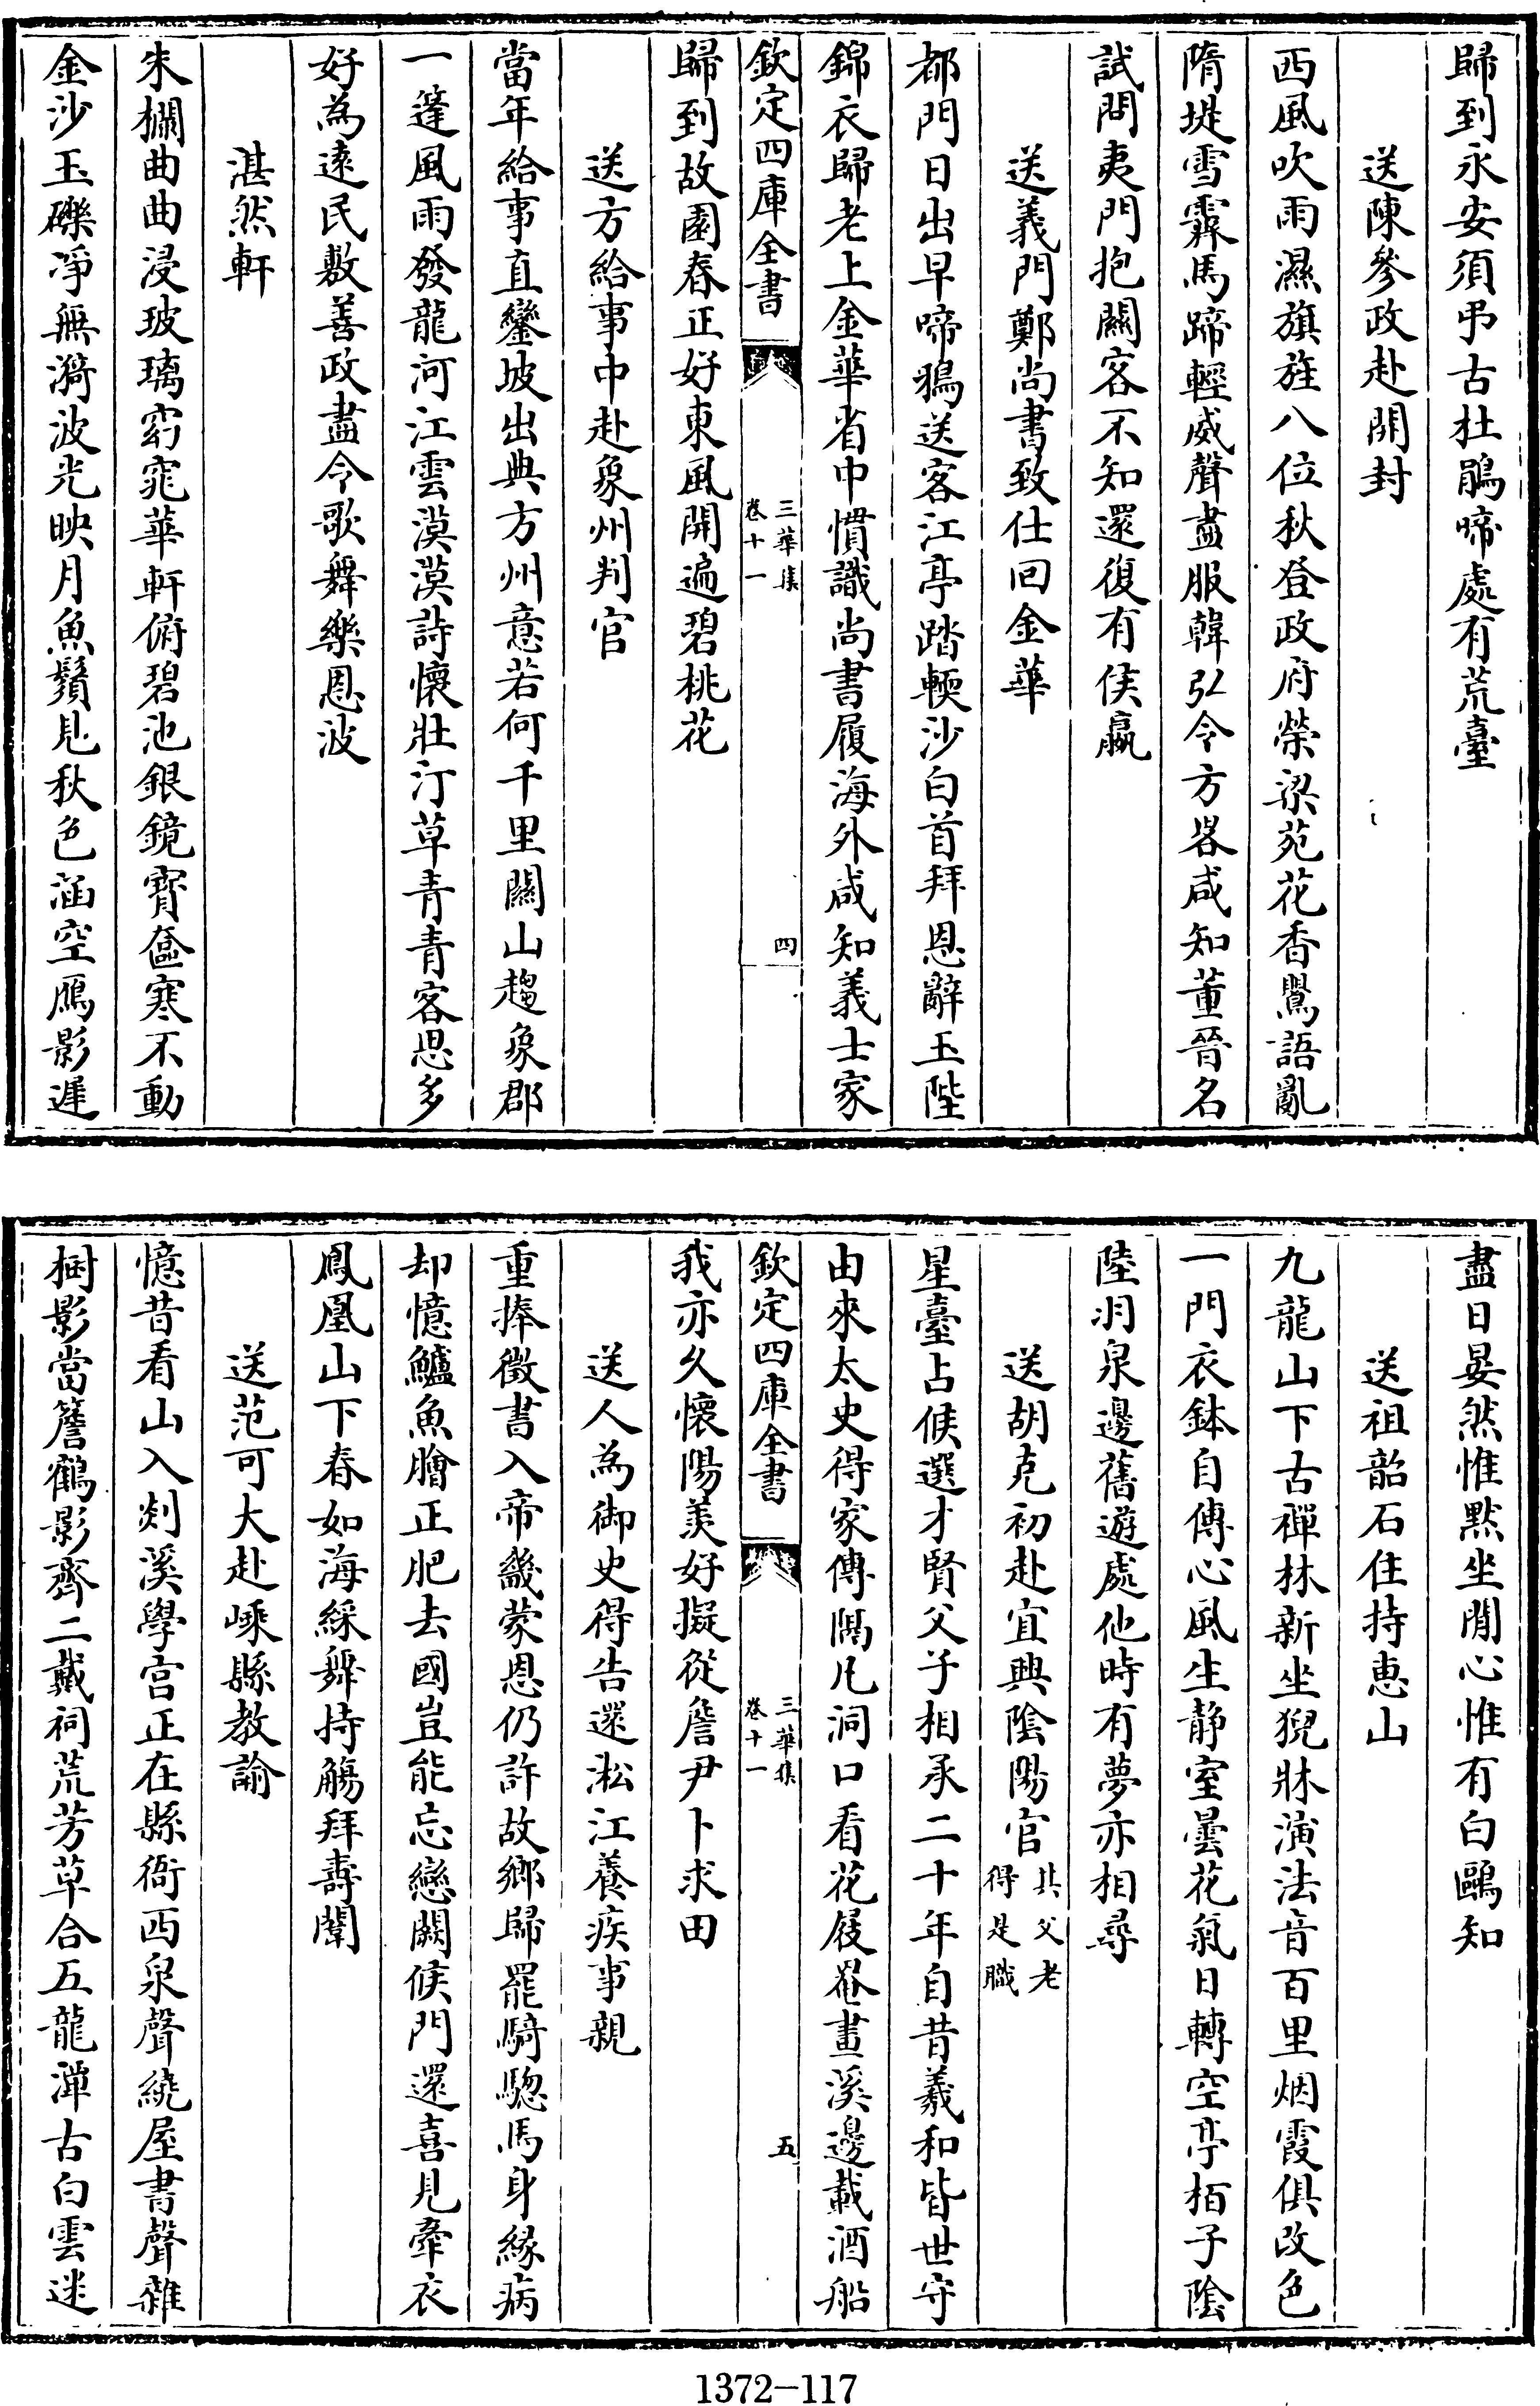 歸到永安須弔古杜鵑啼處有荒臺
送陳參政赴開封
西風吹雨濕旗旌八位秋登政府榮梁苑花香鶯語亂
隋堤雪霽馬蹄輕威聲盡服韓弘令方畧咸知董晉名
試問夷門抱關客不知還復有侯嬴
送義門鄭尚書致仕回金華
都門日出早啼鴉送客江亭踏輭沙白首拜恩辭玉陛
錦衣歸老上金華省中慣識尚書履海外咸知義士家
欽定四庫全書
三華集
卷十一
四
歸到故園春正好東風開遍碧桃花
送方給事中赴象州判官
當年給事直鑾坡出典方州意若何千里關山趨象郡
一篷風雨發龍河江雲漠漠詩懷壯汀草青青客思多
好為遠民敷善政盡令歌舞樂恩波
湛然軒
朱欄曲曲浸玻璃窈窕華軒俯碧池銀鏡寶奩寒不動
金沙玉礫凈無漪波光映月魚鬚見秋色涵空鴈影遲
盡日晏然惟黙坐閒心惟有白鷗知
送祖韶石住持惠山
九龍山下古禪林新坐猊牀演法音百里烟霞俱改色
一門衣鉢自傳心風生静室曇花氣日轉空亭栢子陰
陸羽泉邊舊遊處他時有夢亦相尋
送胡克初赴宜興陰陽官其父老得是職
星臺占候選才賢父子相承二十年自昔羲和皆世守
由來太史得家傳隔凡洞口看花屐罨畫溪邊載酒船
欽定四庫全書
三華集
卷十一
五
我亦久懷陽羨好擬從詹尹卜求田
送人為御史得告還淞江養疾事親
重捧徵書入帝畿蒙恩仍許故鄉歸罷騎驄馬身緣病
却憶鱸魚膾正肥去國豈能忘戀闕候門還喜見牽衣
鳳凰山下春如海綵舞持觴拜壽闈
送范可大赴嵊縣教諭
憶昔看山入剡溪學宫正在縣衙西泉聲繞屋書聲雜
樹影當簷鶴影齊二戴祠荒芳草合五龍潭古白雲迷
1372-117